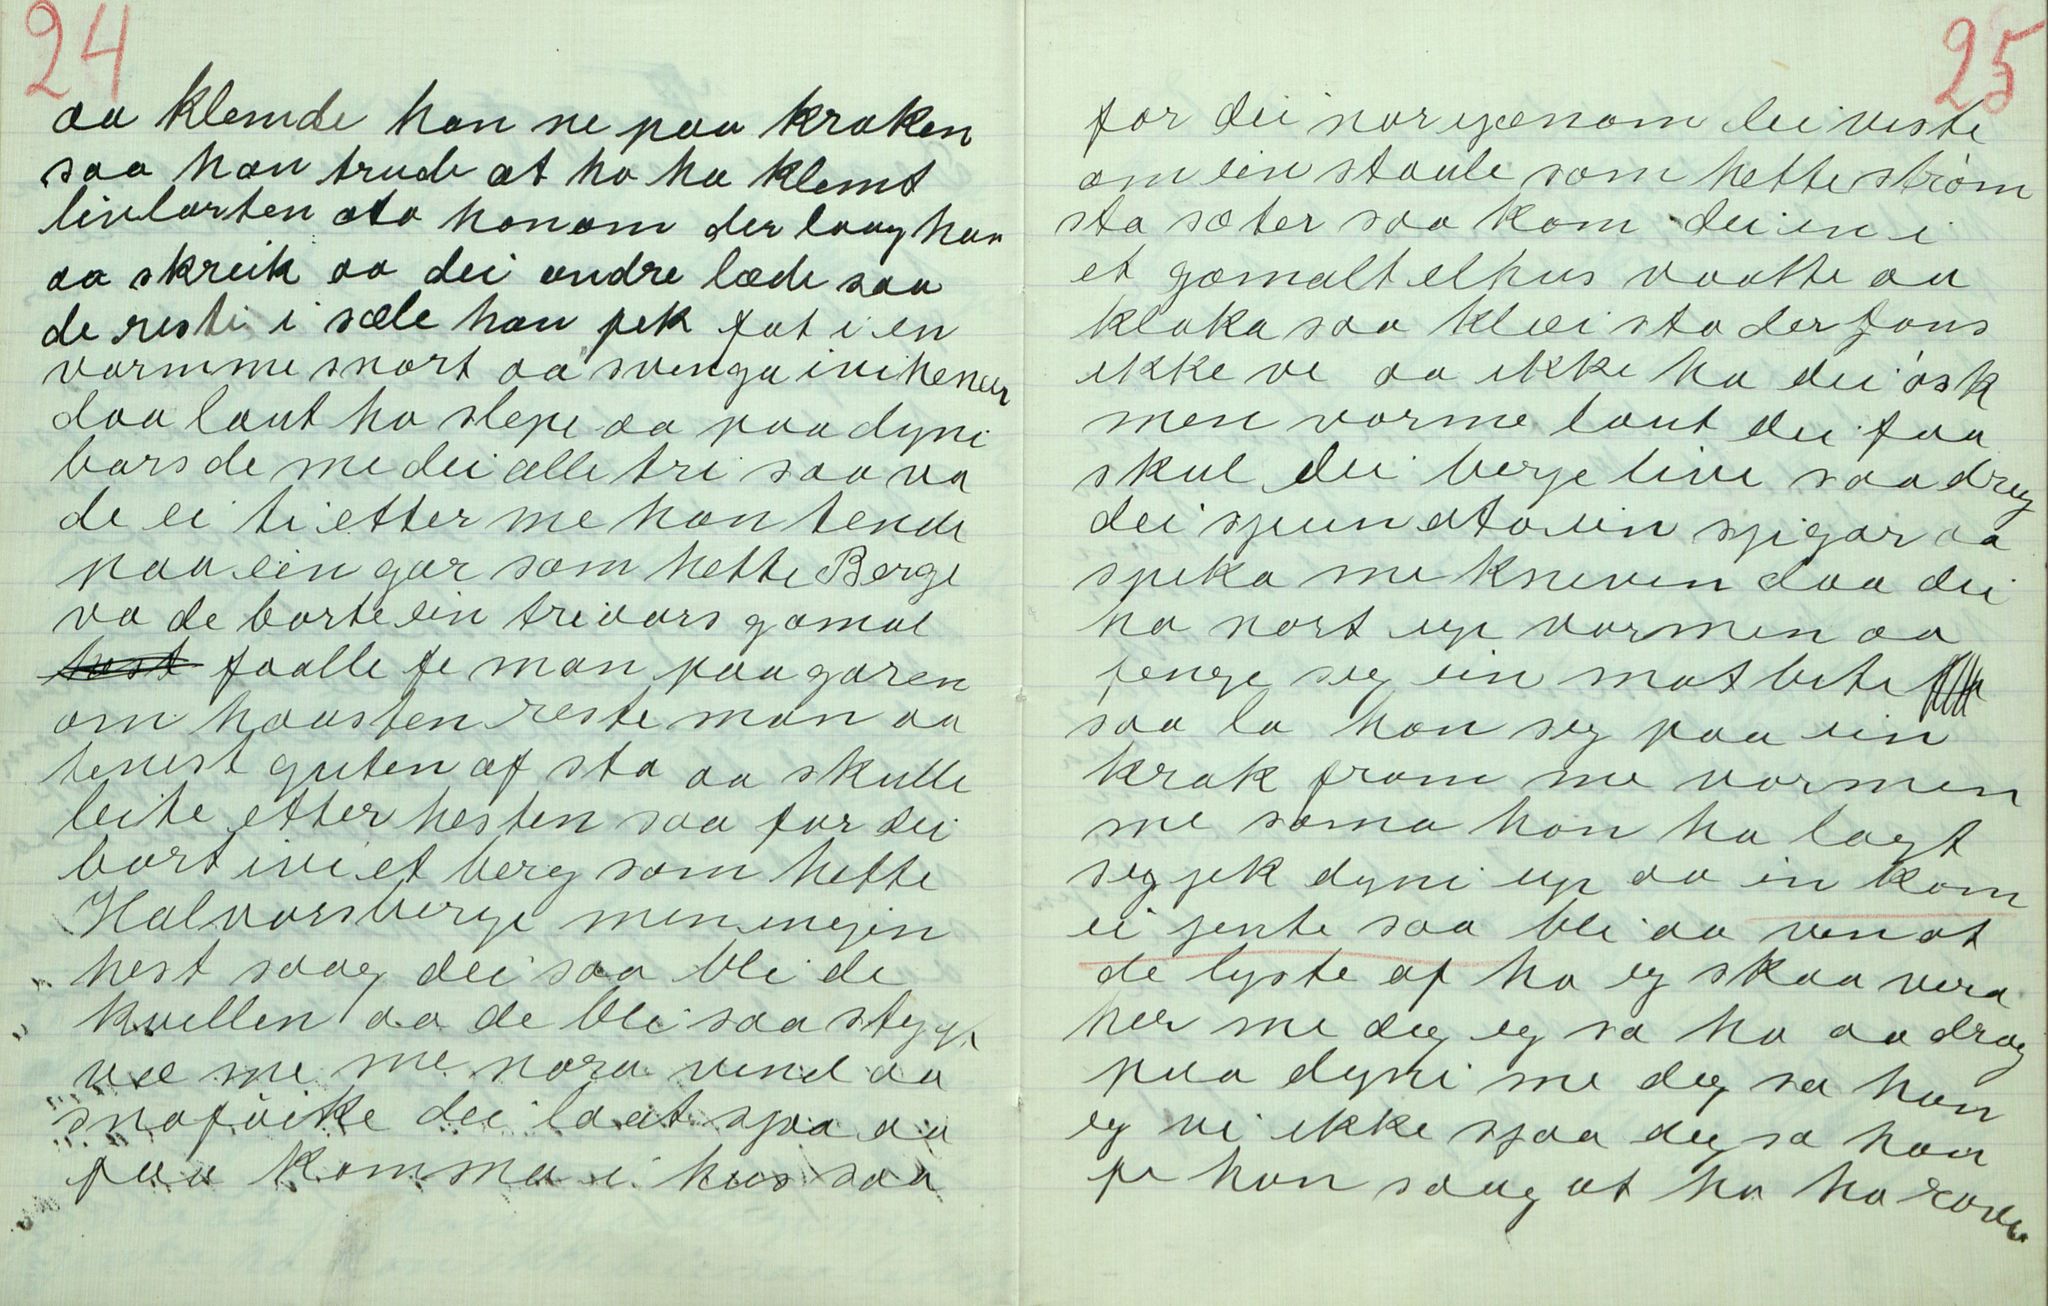 24
aa klemde han ne paa kraken
saa han trude at ho ha klemt
livlarten ata honom der laag han
aa skreik aa dei andre læde saa
de reste i sæle han fek fat i en
varmme snort aa svenga ivi heneir
daa laut ho slepe aa paa dyni
bars de me dei alle tri saa va
de ei ti etter me han tende
paa ein gar som hette Berge
va de borte ein triaars gamal
faalle fe man paa garen
om haasten reste man aa
tenest guten af sta aa skulle
leite etter hesten saa for dei
bort ivi et berg som hette
Halvorsberge men ingin
hest saag dei saa blei de
kvellen aa de blei saa stygt
væ me me nora vind aa
snøfoike dei laat sjaa aa
faa komma i hus saa
25
for dei nor igænom dei viste
om ein staule som hette strøm
sta sæter saa kom dei in i
et gamalt elhus vaatte aa
klaka saa klæi sta der fans
ikke ve aa ikke ha dei øsk
men varme laut dei faa
skul dei berge live saa dreg
dei spun ata ein spigar aa
speka me kneven daa dei
ha nort up varmen aa
fenge seg ein mat bete
saa la han seg paa ein
krak fram me varmen
me sama han ha lagt
seg jek dyni up aa in kom
ei jente saa bli aa ven at
de lyste af ho eg skaa vera
her me deg eg sa ho aa drog
paa dyni me deg sa han
eg vi ikke sjaa deg sa han
fe han saag at ho ha